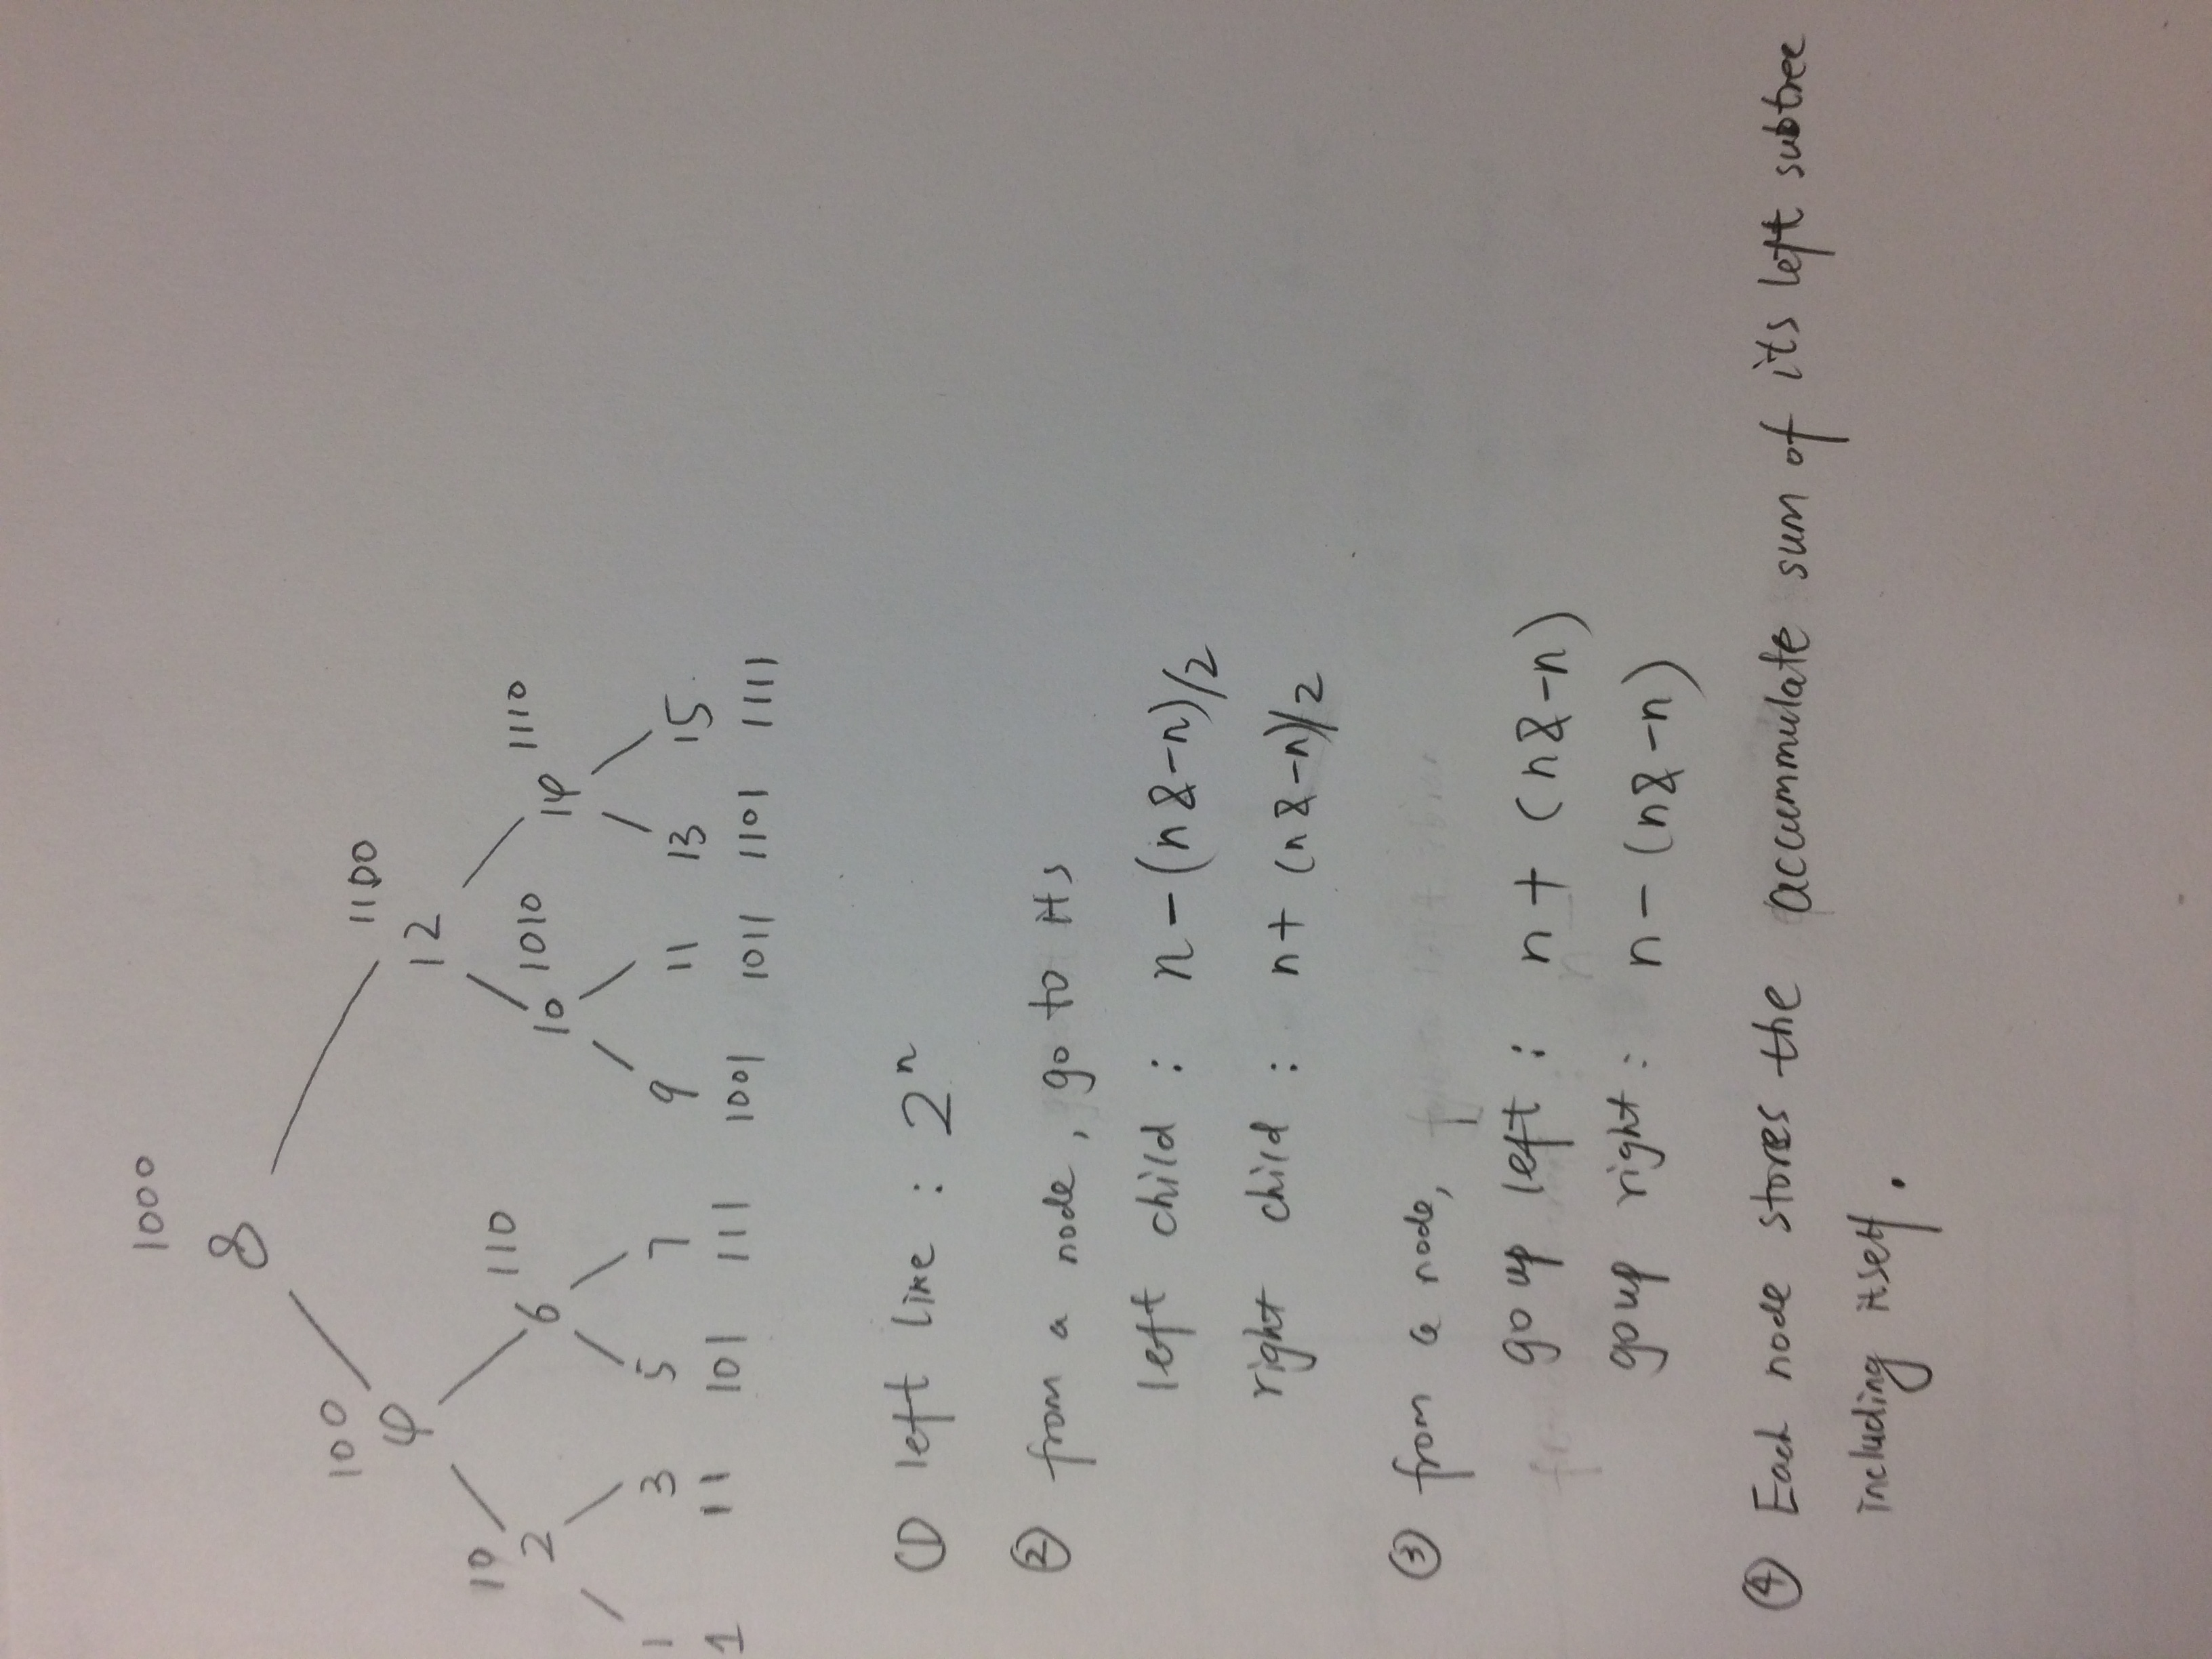 1000
8
100
4
1100
12
10
2
110
6
10 1010
14 1110
1 3 5 7 9 11 13 15
1 11 101 111 1001 1011 1101 1111
① left line : 2ⁿ
② from a node, go to its
left child : n-(n&-n)/2
right child : n+ (n&-n)/2
③ from a node,
go up left : n + (n&-n)
go up right : n - (n&-n)
④ Each node stores the accummulate sum of its left subtree
including itself.